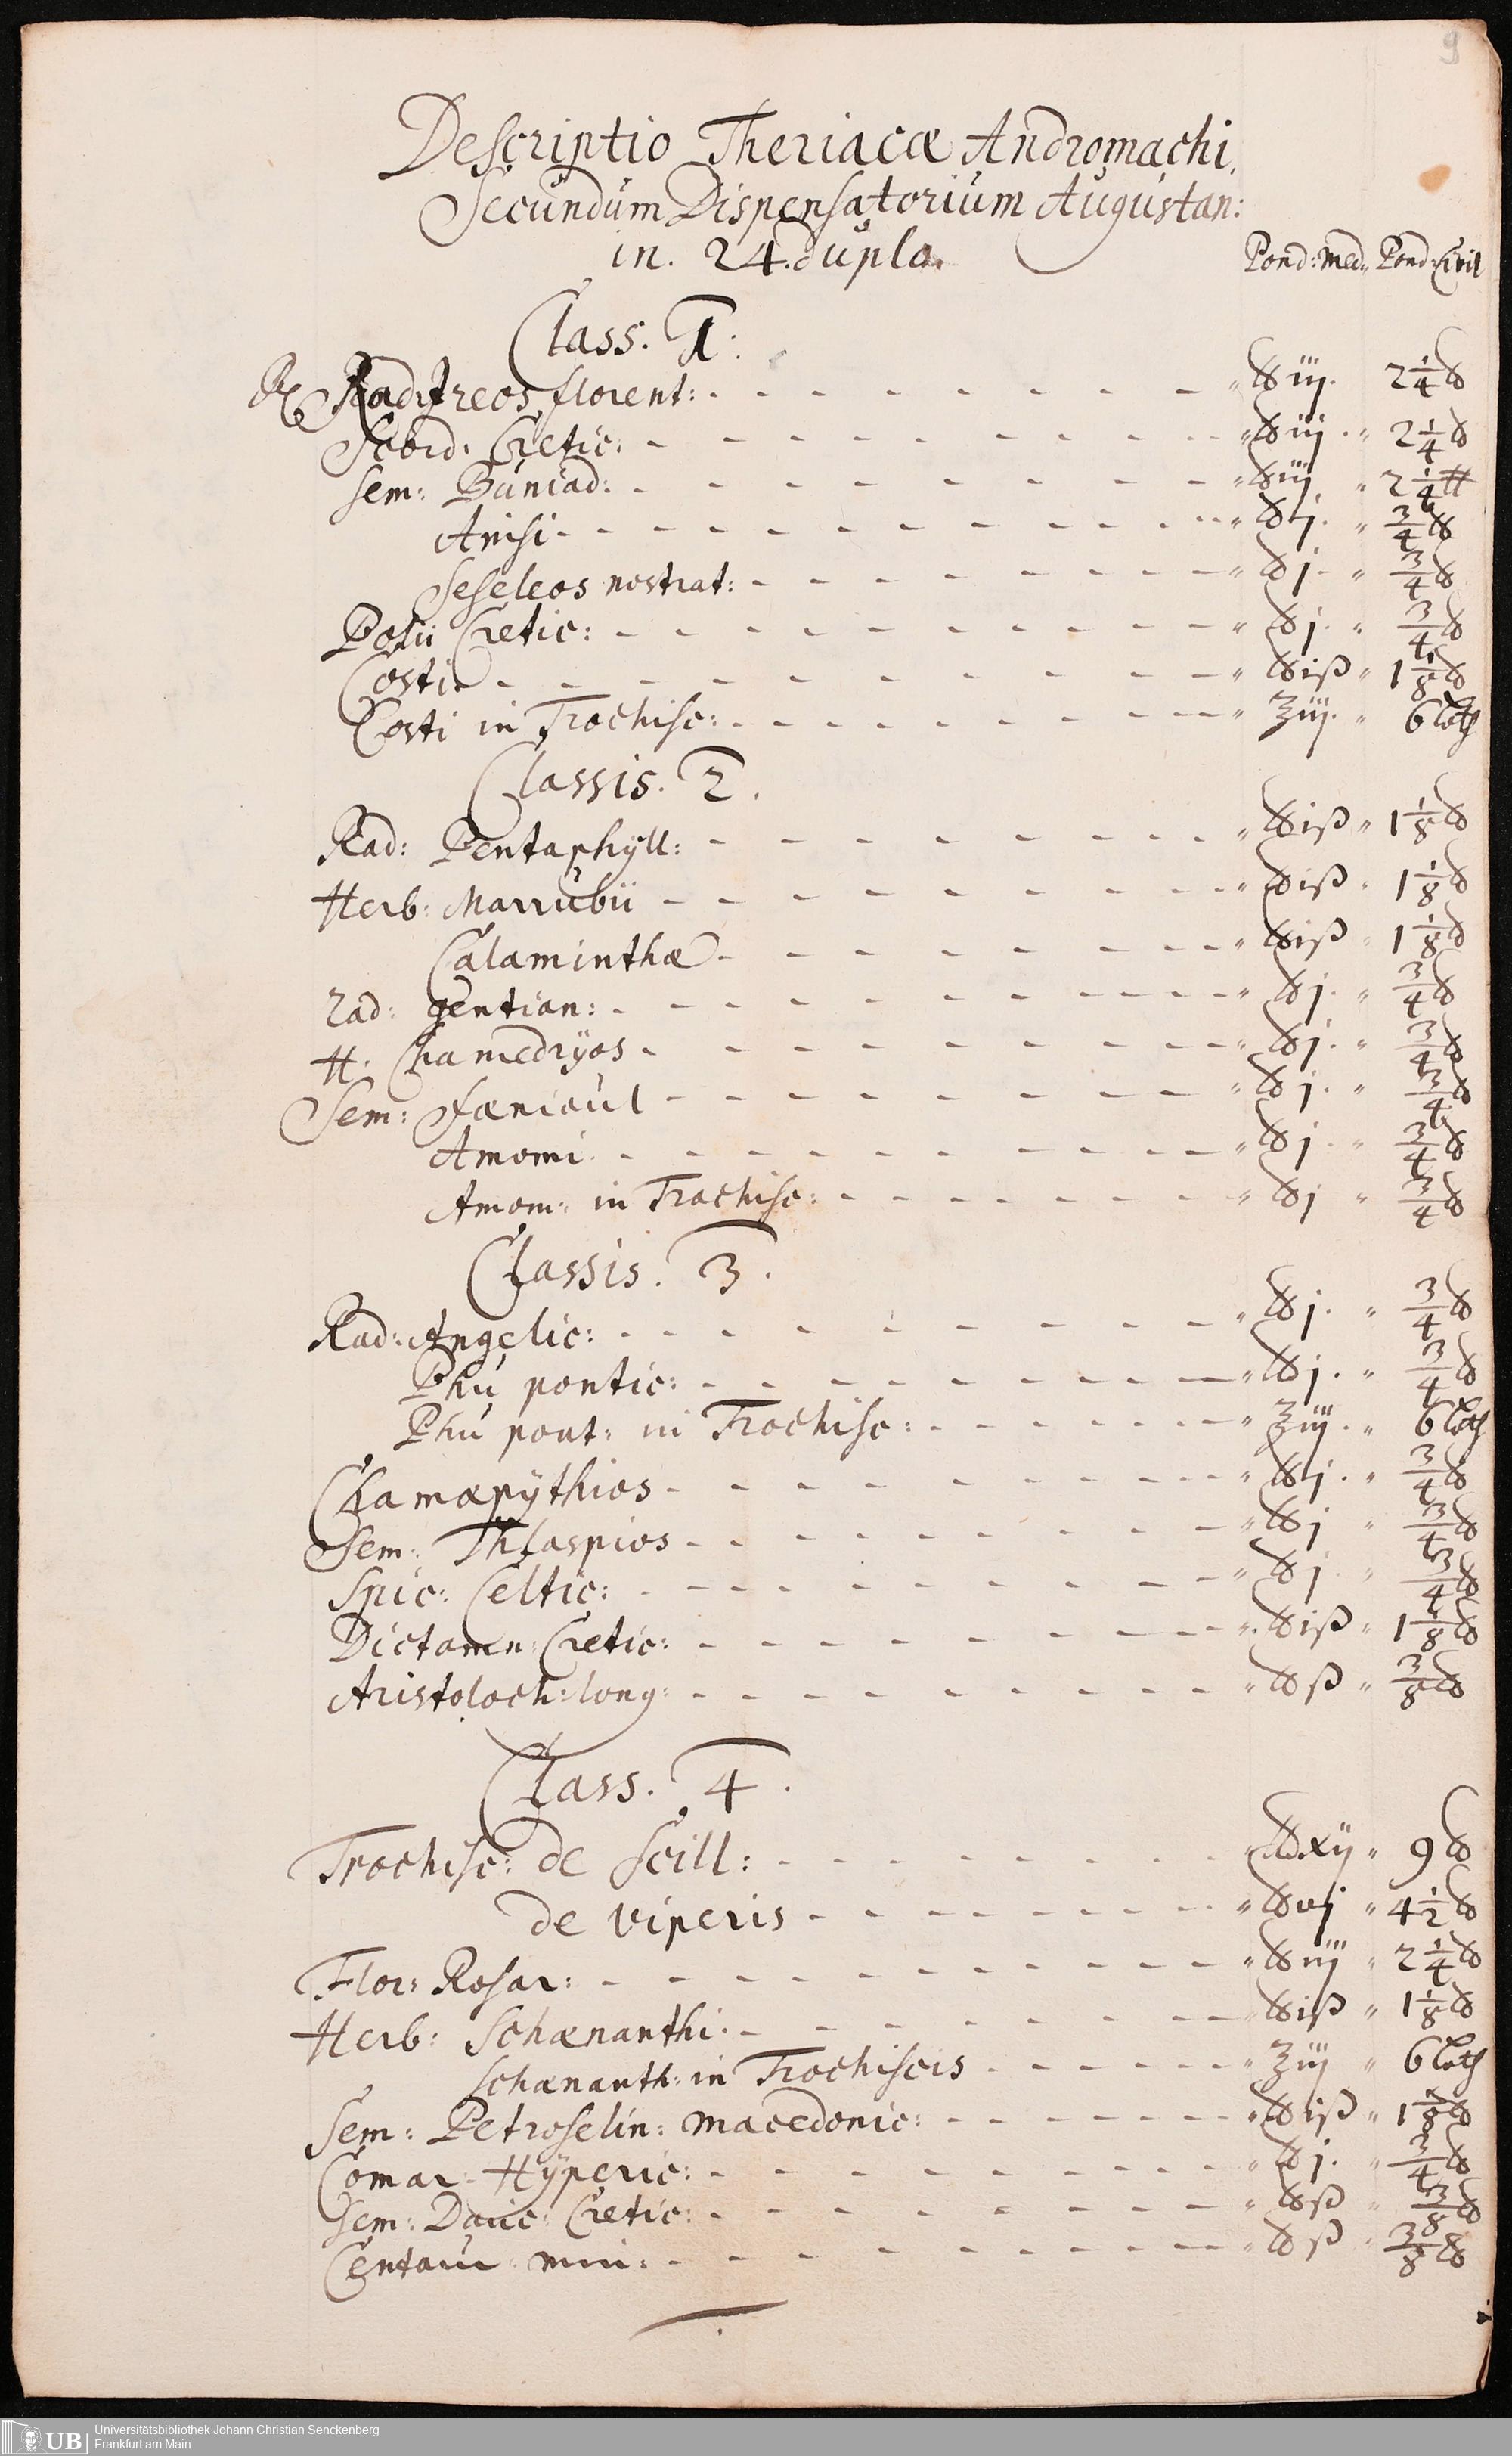 9
Descriptio Theriacæ Andromachi.
Secundum Dispensatorium Augustan:
in. 24. dupla.
Pond: Med: Pond: Civil
Class. 1:
℞ Rad. Ireos florent: ℔ iij. 2 1/4 ℔
Scord. Cretic: ℔ iij. 2 1/4 ℔
Sem: Buniad: ℔ iij 2 1/4 ℔
Anisi ℔ j. 3/4 ℔
Seseleos nostrat: ℔ j. 3/4 ℔
Polii Cretic: ℔ j. 3/4 ℔
Costi ℔ iß 1 1/8 ℔
Costi in Trochisc: ℥ iij. 6 loth
Classis. 2.
Rad: Pentaphyll: ℔ iß 1 1/8 ℔
Herb: Marrubii ℔ iß 1 1/8 ℔
Calaminthæ ℔ iß 1 1/8 ℔
Rad: gentian: ℔ j. 3/4 ℔
H. Chamedryos ℔ j. 3/4 ℔
Sem: Fænicul ℔ j. 3/4 ℔
Amomi ℔ j. 3/4 ℔
Amom: in Trochisc: ℔ j 3/4 ℔
Classis. 3.
Rad: Angelic: ℔ j. 3/4 ℔
Phu pontic: ℔ j. 3/4 ℔
Phu pont: in Trochisc: ℥ iij. 6 loth
Chamæpythios ℔ j. 3/4 ℔
Sem: Thlaspios ℔ j 3/4 ℔
Spic: Celtic: ℔ j. 3/4 ℔
Dictamn: Cretic: ℔ iß 1 1/8 ℔
Aristoloch: long: ℔ ß 3/8 ℔
Class. 4.
Trochisc: de Scill: ℔ xij 9 ℔
de viperis ℔ vj 4 1/2 ℔
Flor: Rosar: ℔ iij 2 1/4 ℔
Herb: Schænanthi: ℔ iß 1 1/8 ℔
Schænanth: in Trochiscis ℥ iij 6 loth
Sem: Petroselin: Macedonic: ℔ iß 1 1/8 ℔
Comar Hyperic: ℔ j. 3/4 ℔
Sem: Dauc: Cretic: ℔ ß 3/8 ℔
Centaur min: ℔ ß 3/8 ℔
UB Universitätsbibliothek Johann Christian Senckenberg
Frankfurt am Main